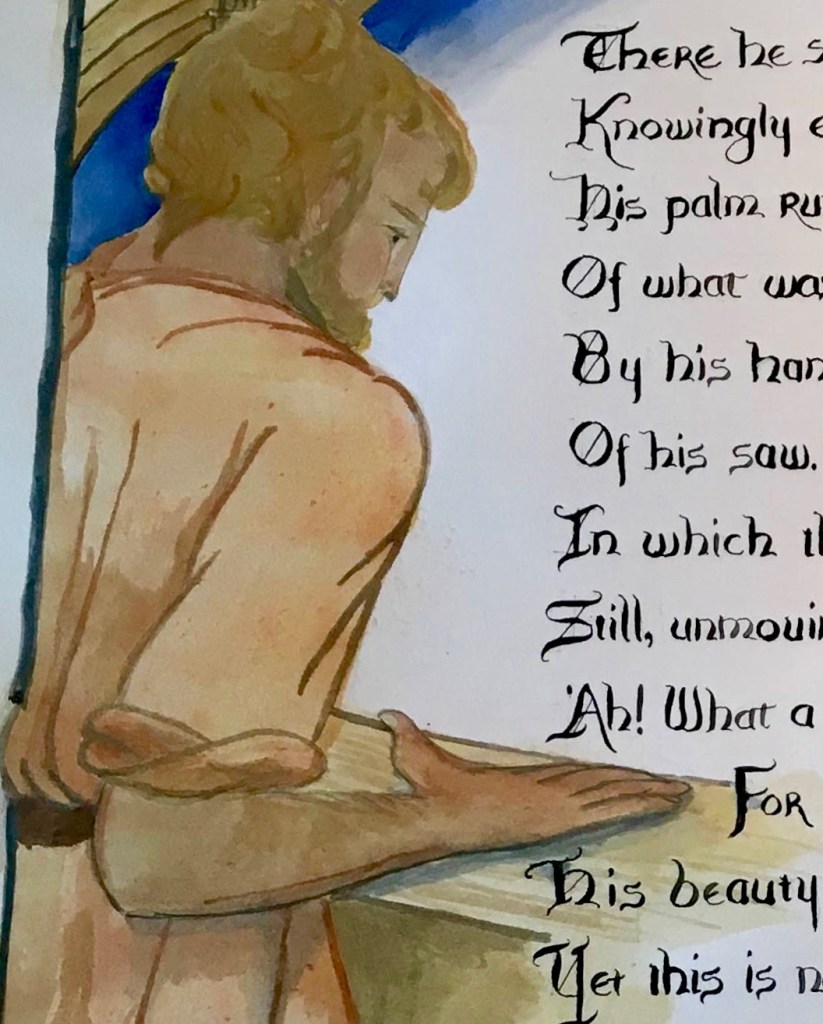 There he s
Knowingly e
His palm ru
Of what was
By his han
Of his saw.
In which th
Still, unmovin
'Ah! What a
For
His beauty
Yet this is n